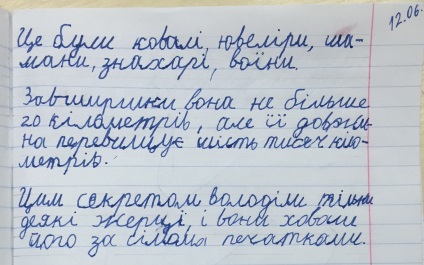 12.06.
Це були ковалі, ювеліри, ша-
мани, знахарі, воїни.
Завширшки вона не більше
20 кілометрів, але її довжи-
на перевищує шість тисяч кіло-
метрів.
Цим секретом володіли тільки
деякі жерці, і вони ховали
його за сімома печатками.